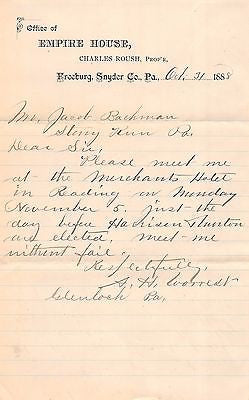 Office of
EMPIRE HOUSE,
CHARLES ROUSH, PROP'R,
Freeburg, Snyder Co., Pa., Oct. 31 1888
Mr. Jacob Bachman
Stony Pa.
Dear Sir,
Please meet me
at the Merchants Hotel
in Reading on Monday
November 5. just the
day before Harison
are elected, meet me
without fail.
Respectfully,
S. H. Worrest
Glenloch Pa.